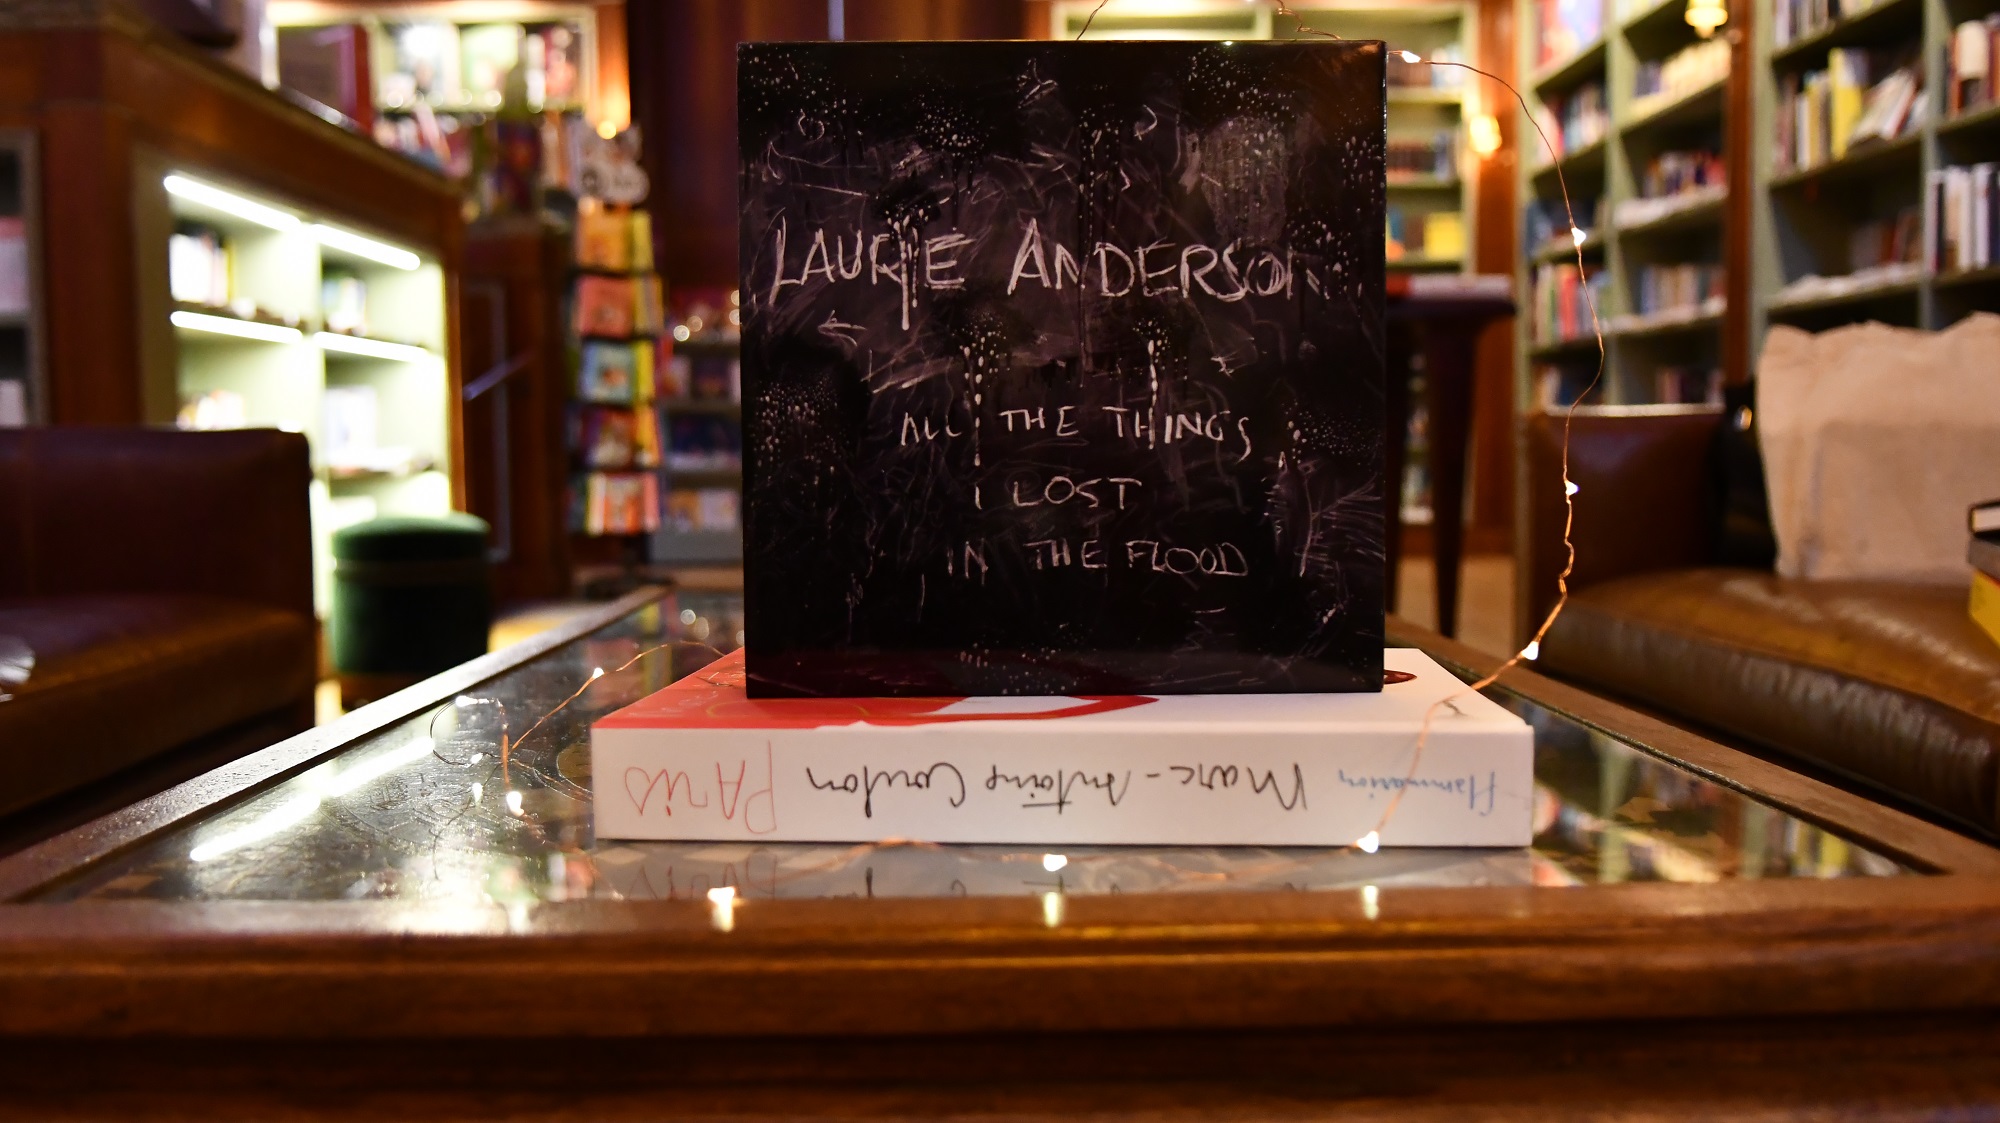 LAURIE ANDERSON
ALL THE THINGS
I LOST
IN THE FLOOD
Flammarion Marc-Antoine Coulon PARiS